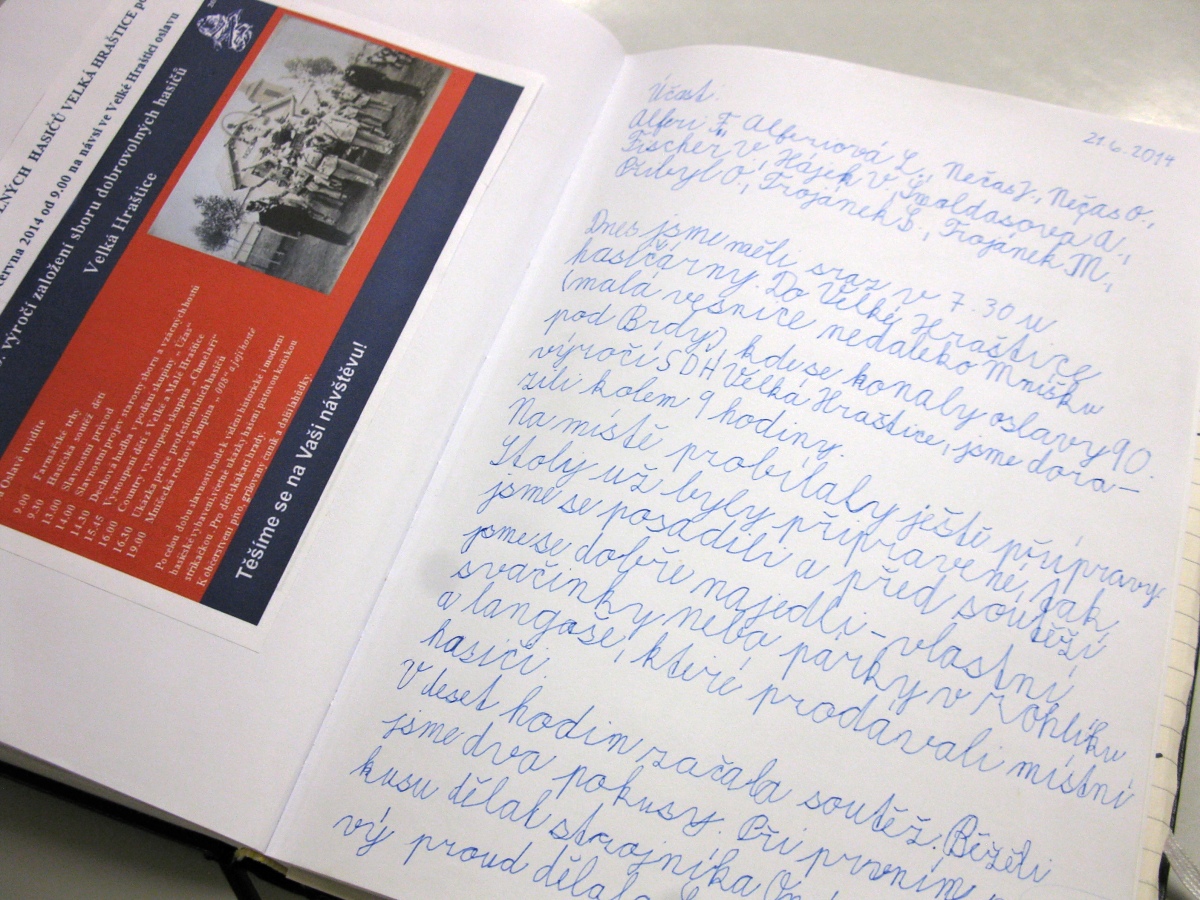 ZNÝCH HASIČŮ VELKÁ HRAŠTICE
června 2014 od 9.00 na návsi ve Velké Hraštici oslavu
výročí založení sboru dobrovolných hasičů
Velká Hraštice
Oslavě uvidíte
9.00 Farmářské trhy
9.30 Hasičská soutěž dětí
13.00 Slavnostní průvod
14.00 Slavnostní projev starosty sboru a vzácných hostů
14.30 Dechová hudba v podání skupiny „Úžas“
15.45 Vystoupení dětí z Velké a Malé Hraštice
16.00 Country vystoupení skupina „Chmelaři“
16.30 Ukázka práce profesionálních hasičů
19.00 Mníšecká rocková skupina „008“ a její hosté
Po celou dobu slavnosti bude k vidění historické i moderní
hasičské vybavení, včetně ukázky hašení purtovou koňskou
stříkačkou. Pro děti skákací hrady.
K občerstvení pivo, grilovaný čuník a další lahůdky.
Těšíme se na Vaši návštěvu!
21.6.2014
Účast:
Alferi F., Alferiová L., Nečas J., Nečas O.,
Fischer V., Hájek V., Svoldasová A.,
Přibyl O., Trojánek Š., Trojánek M.,
Dnes jsme měli sraz v 7.30 u
hasičárny. Do Velké Hraštice
(malá vesnice nedaleko Mníšku
pod Brdy), kde se konaly oslavy 90.
výročí SDH Velká Hraštice, jsme dora-
zili kolem 9 hodiny.
Na místě probíhaly ještě přípravy.
Stoly už byly připravené, tak
jsme se posadili a před soutěží
jsme se dobře najedli - vlastní
svačinky nebo párky v rohlíku
a langoše, které prodávali místní
hasiči.
V deset hodin začala soutěž. Běželi
jsme dva pokusy. Při prvním
kusu dělal strojníka
vý proud dělala